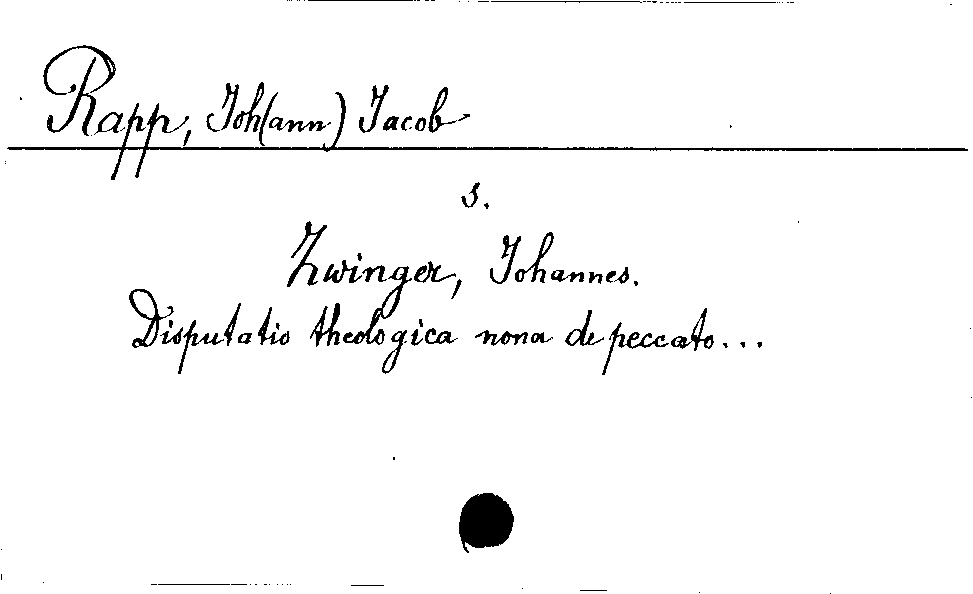 Rapp, Joh(ann) Jacob
s.
Zwinger, Johannes.
Disputatio theologica nona de peccato...